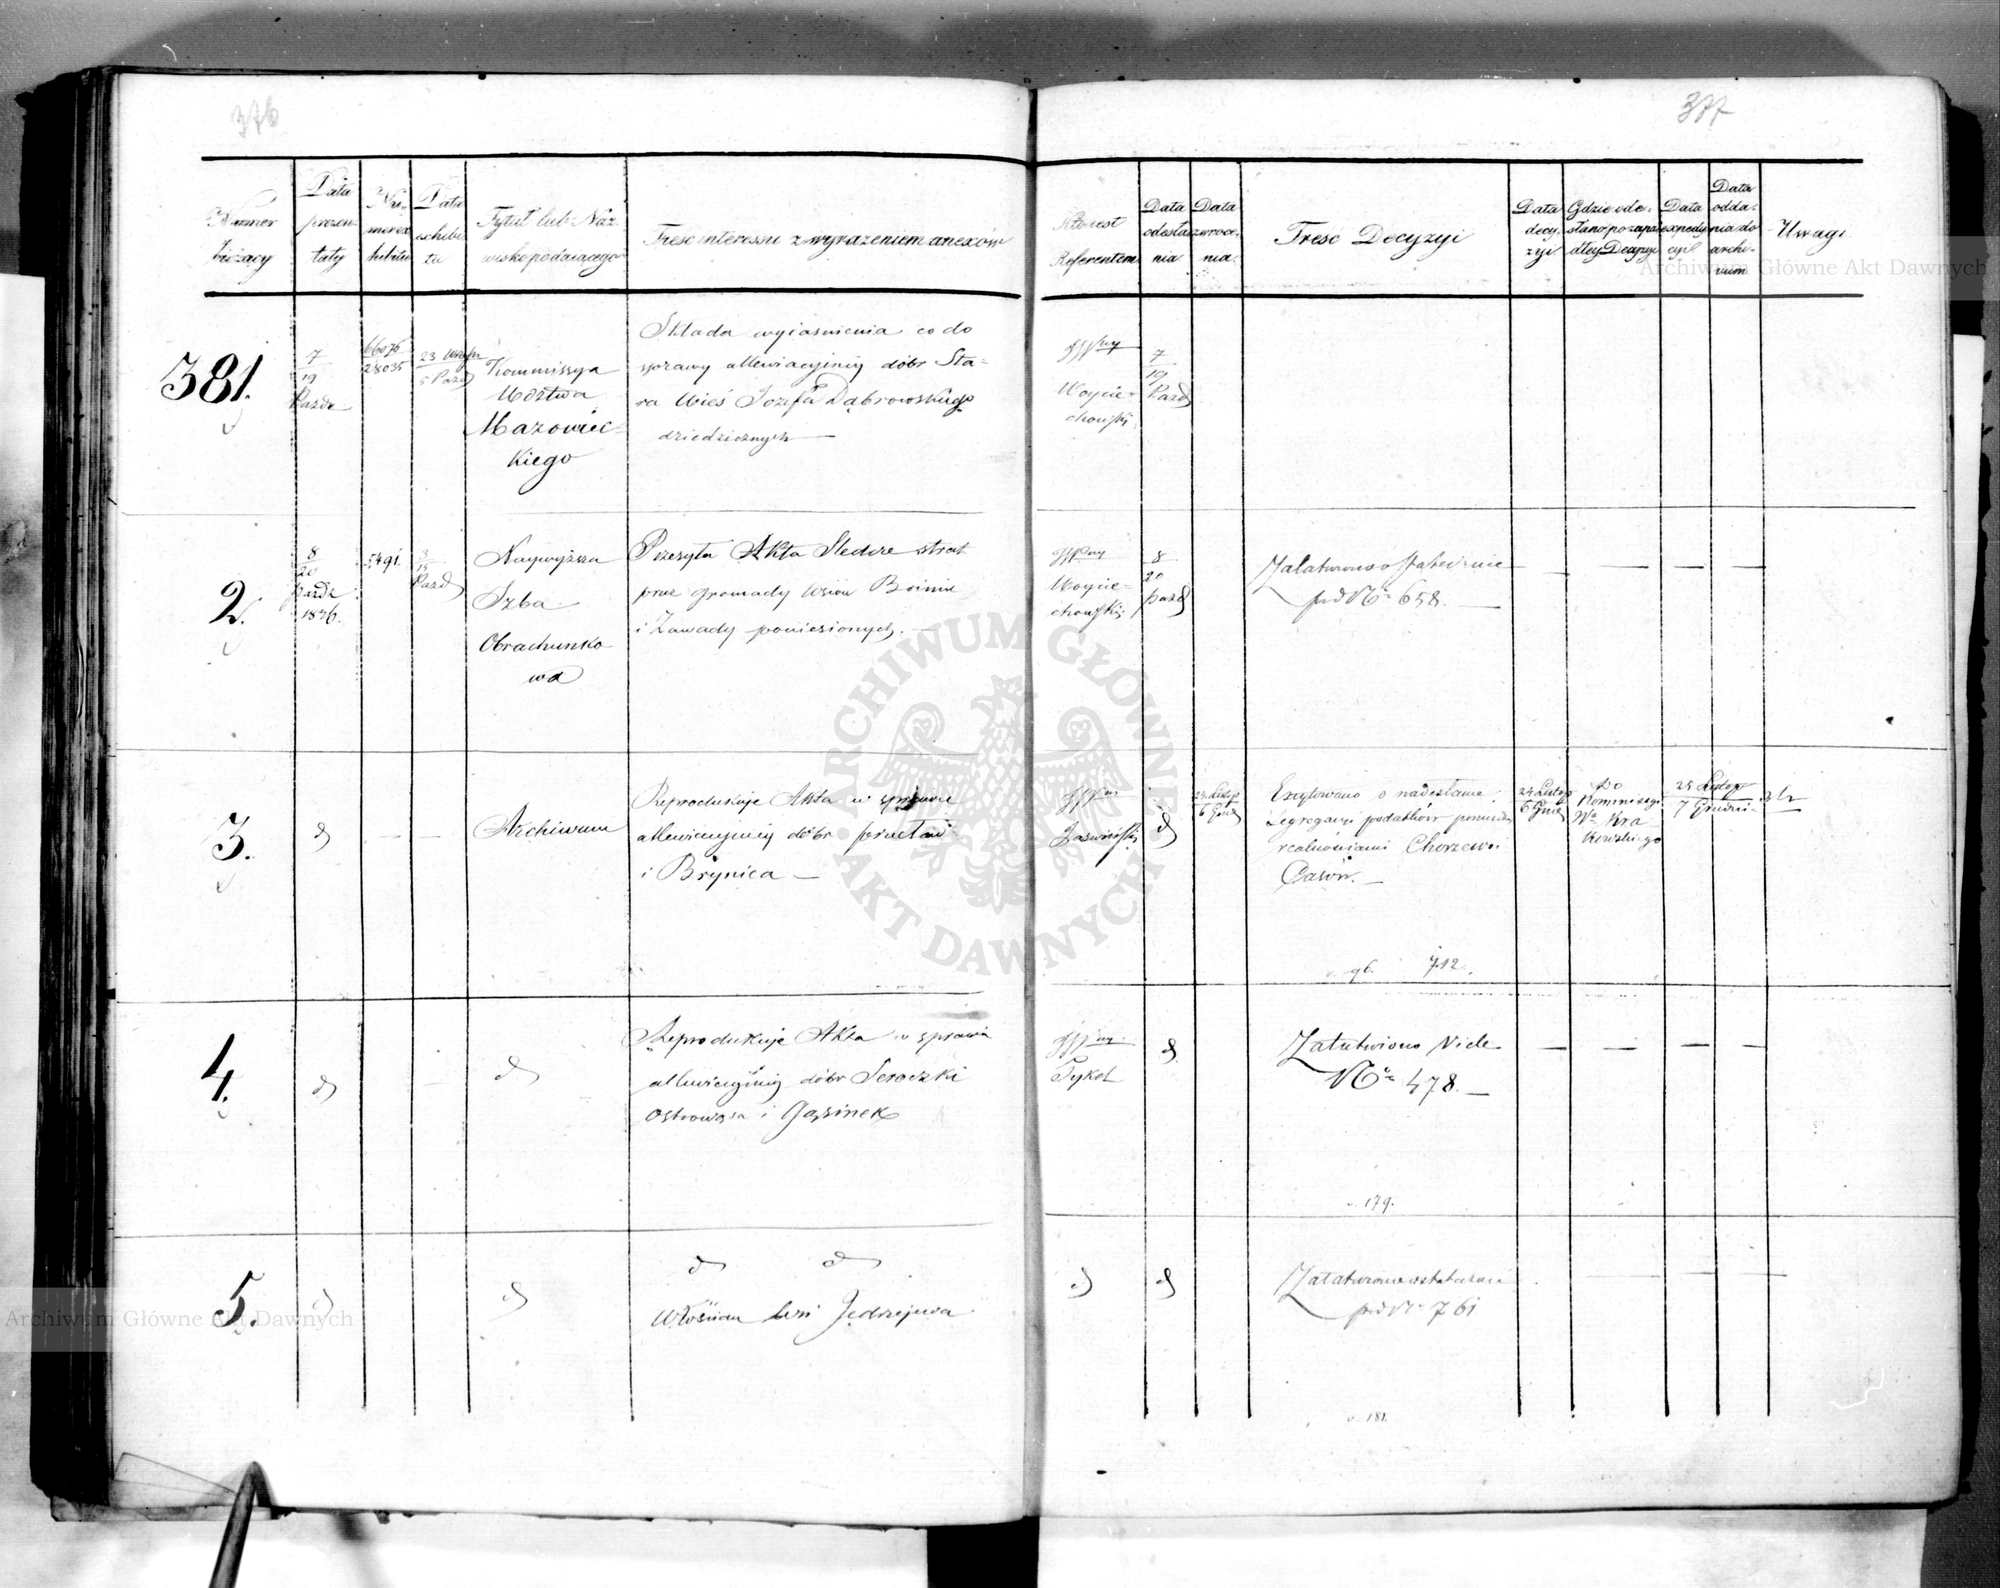 376
377
Numer bieżący
Data prezentaty
Numer exhibitu
Data exhibitu
Tytuł lub Nazwisko podaiącego
Treść interessu z wyrażeniem anexów
Kto iest Referentem
Data odesłania
Data zwrocenia
Tresc Decyzyi
Data decyzyi
Gdzie odesłano po zapadłey Decyzyi
Data expedycyi
Data oddania do archivum
Uwagi
381.
7/19 Pazdr
66076
28035
5 Pazd
Kommissya
Wdztwa
Mazowiec-
kiego
Składa wyiasnienia co do
sprawy allewiacyjney dóbr Sta-
ra Wieś Jozefa Dąbrowskiego
dziedzicznych
Woycie-
chowski
7/19 Pazd
2.
8/20
Pazdr
1836.
5491.
3/15
Pazd
Naywyższa
Izba
Obrachunko
wa
Przesyła Akta śledcze strat
przez gromady wsiów Boimie
i Zawady poniesionych.
Woycie-
chowski
8/20
Pazd
Załatwiono ostatecznie
pod Nr 658.
3.
d
Archiwum
Reprodukuje Akta w sprawie
allewiacyjney dóbr
i Brynica
d
6 Grud
Excytowano o nadesłanie
segregacyi podatków pomiędzy
realnościami
24 Listop
6 Grud
Do
Kommissyi
Wa Kra
kowskiego
25 Listop
7 Grudni
712.
4.
d
d
Reprodukuje Akta w sprawie
allewiacyjney dóbr Seroczki
i Gąsinek
Tykel
d
Załatwiono Vide
Nr 478.
179.
5.
d
d
d d
Włościan wsi Jędrzejewa
d
d
Załatwiono ostatecznie
pod Nr 761
181.
ARCHIWUM GŁÓWNE AKT DAWNYCH
Archiwum Główne Akt Dawnych
Archiwum Główne Akt Dawnych